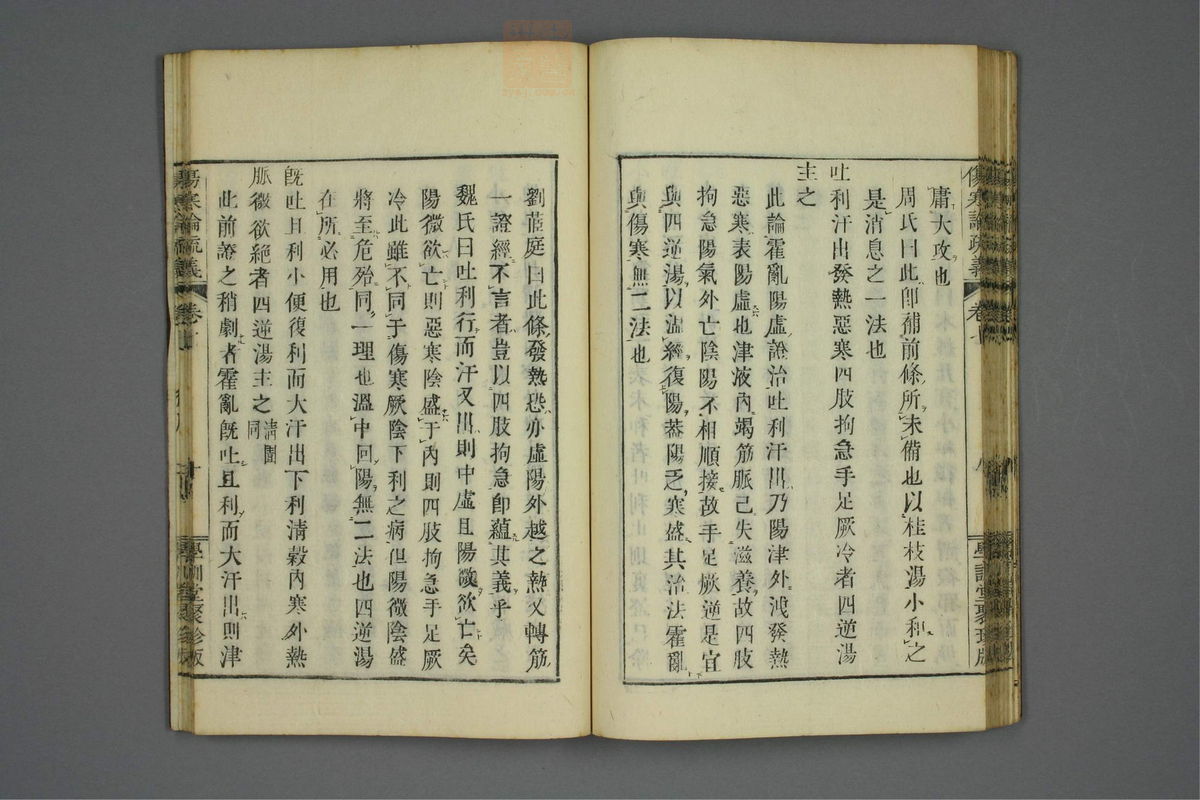 傷寒論疏義
卷
學訓堂聚珍版
庸大攻也
周氏曰此卽補前條所未備也以桂枝湯小和之
是消息之一法也
吐利汗出發熱惡寒四肢拘急手足厥冷者四逆湯
主之
此論霍亂陽虛證治吐利汗出乃陽津外洩發熱
惡寒表陽虛也津液內竭筋脈已失滋養故四肢
拘急陽氣外亡陰陽不相順接故手足厥逆是宜
與四逆湯以溫經復陽葢陽乏寒盛其治法霍亂
與傷寒無二法也
劉茝庭曰此條發熱恐亦虛陽外越之熱又轉筋
一證經不言者豈以四肢拘急卽蘊其義乎
魏氏曰吐利行而汗又出則中虛且陽微欲亡矣
陽微欲亡則惡寒陰盛于內則四肢拘急手足厥
冷此雖不同于傷寒厥陰下利之病但陽微陰盛
將至危殆同一理也溫中回陽無二法也四逆湯
在所必用也
旣吐且利小便復利而大汗出下利清穀內寒外熱
脈微欲絕者四逆湯主之
淸圜
同
此前證之稍劇者霍亂旣吐且利而大汗出則津
傷寒論疏義
卷
十
學訓堂聚珍版